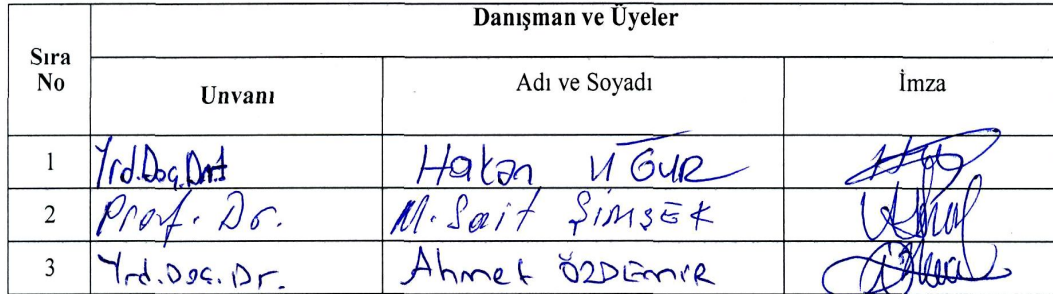 Danışman ve Üyeler
Sıra No Unvanı Adı ve Soyadı İmza
1 Yrd.Doç. Hakan UĞUR
2 Prof. Dr. M. Sait ŞİMŞEK
3 Yrd.Doç.Dr. Ahmet ÖZDEMİR